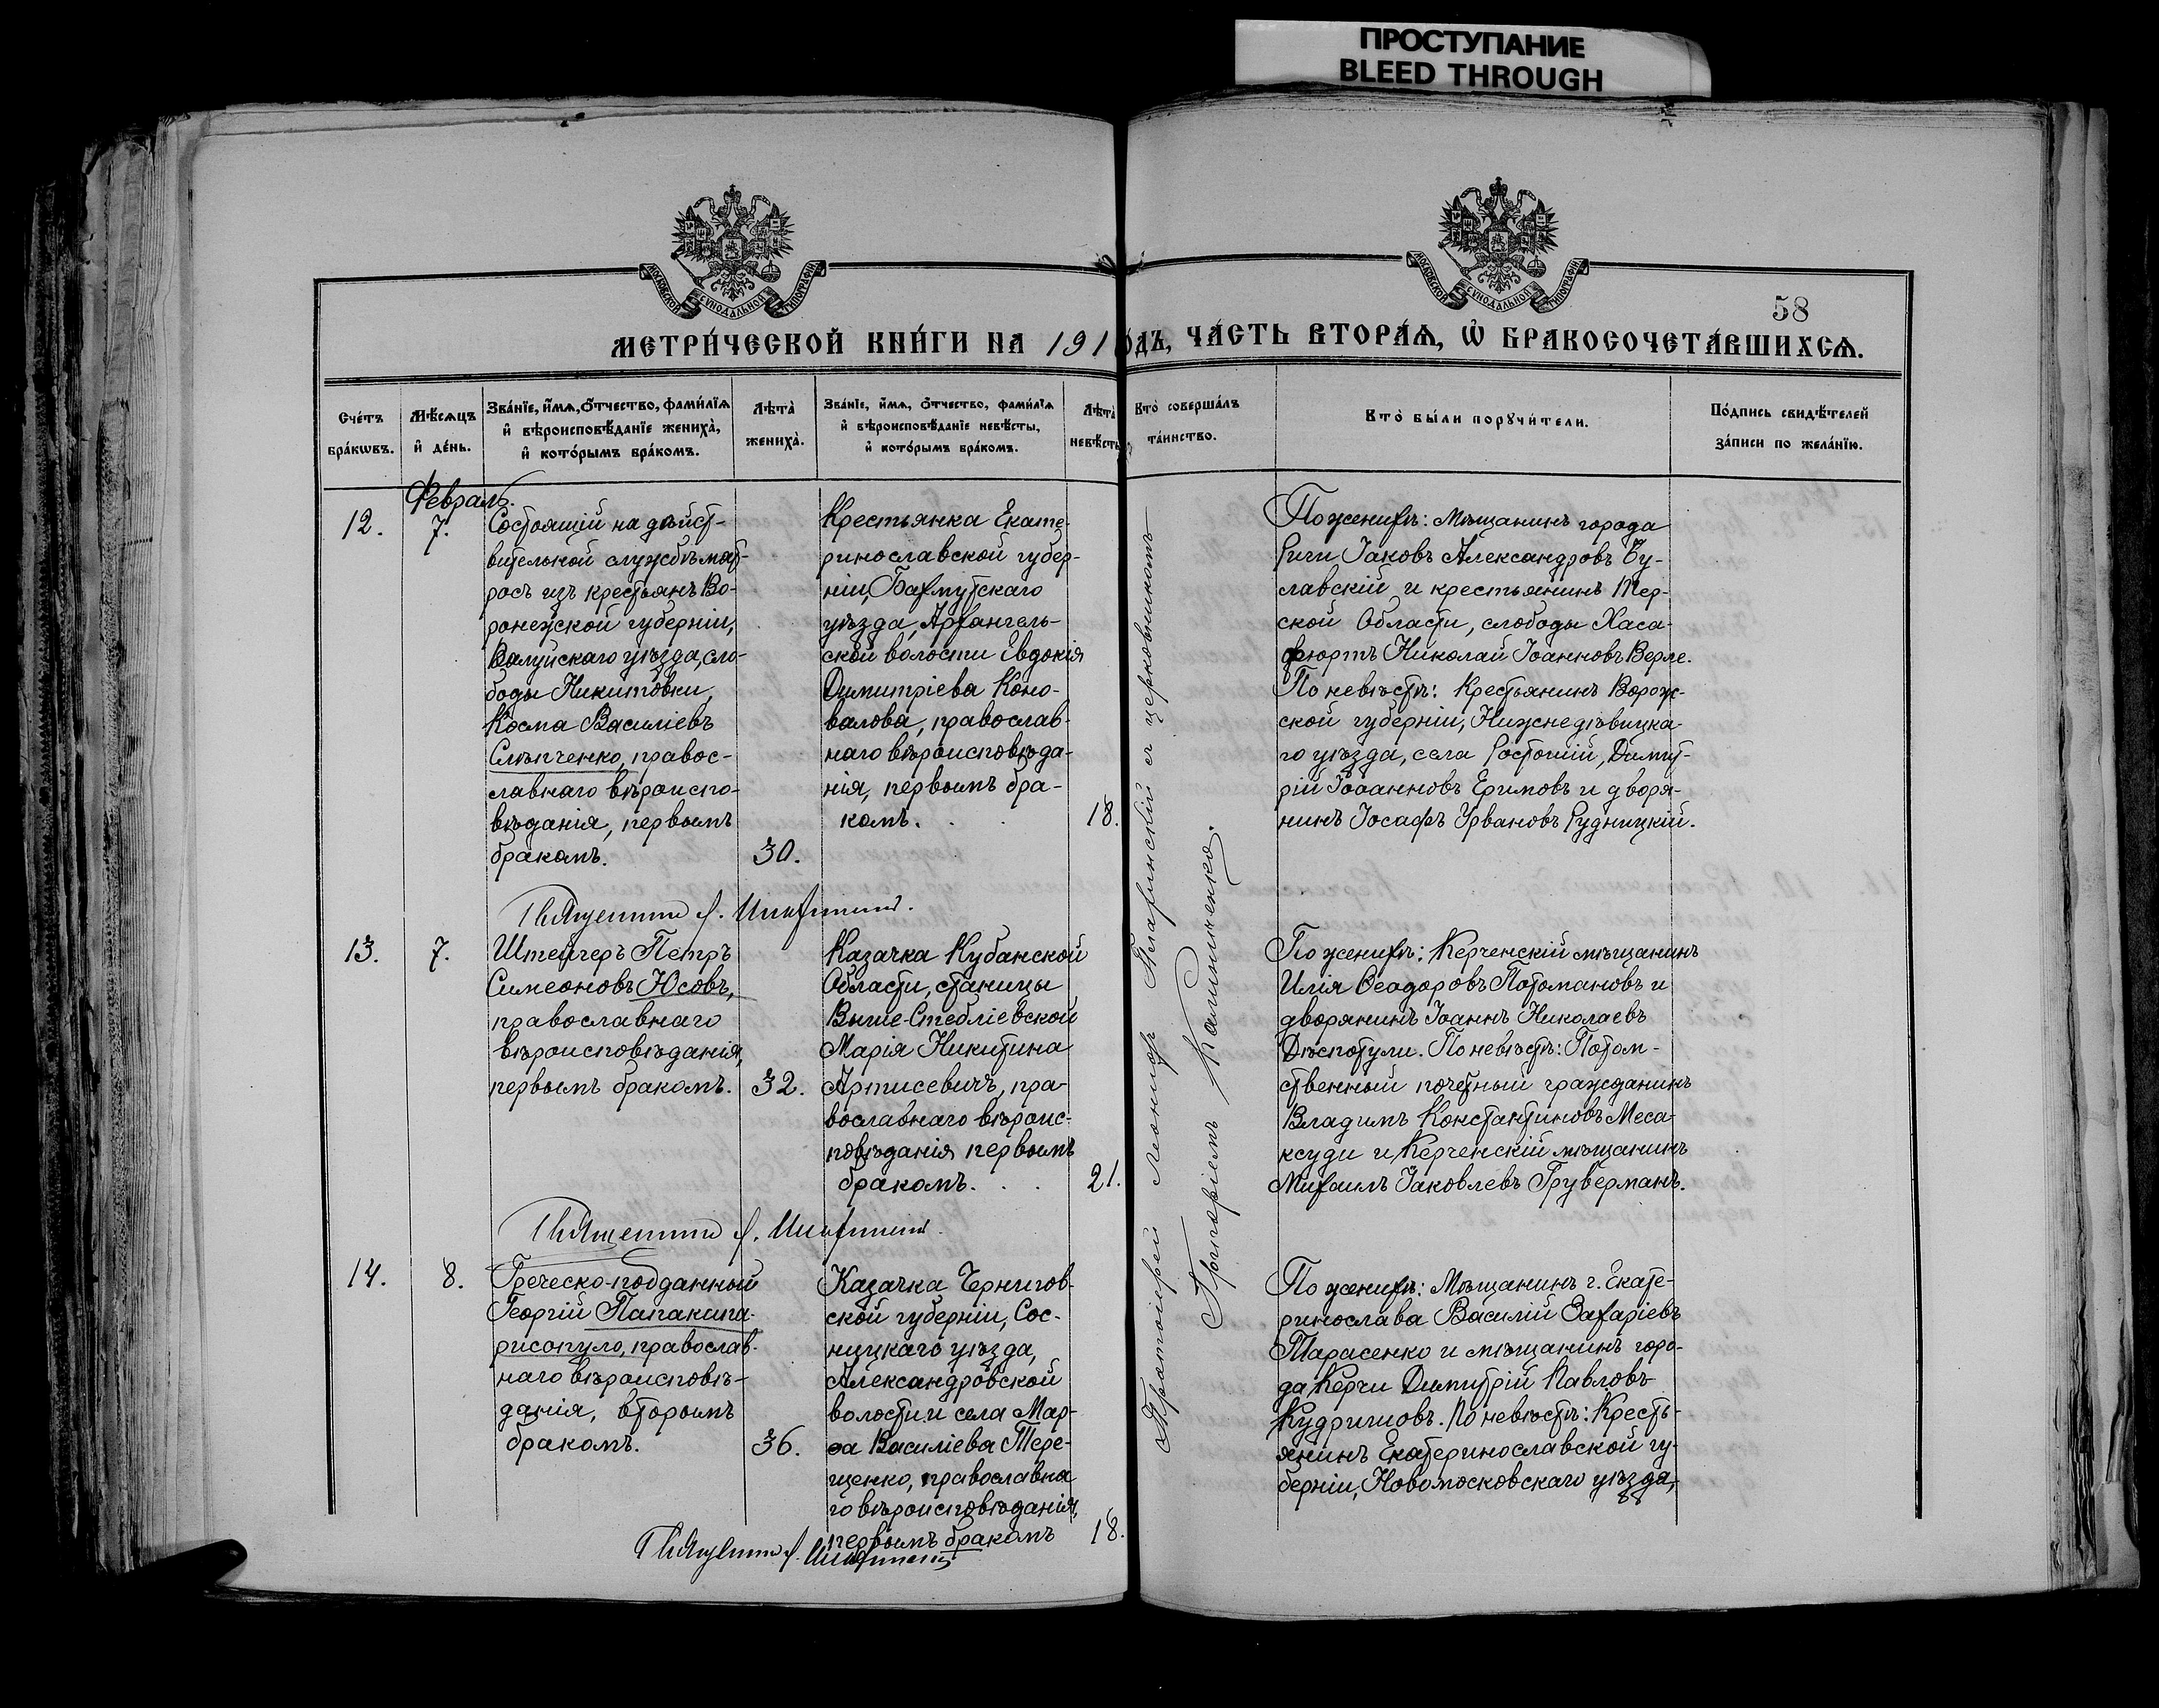 ПРОСТУПАНИЕ
BLEED THROUGH
МОСКОВСКОЙ СѴНОДАЛЬНОЙ ТИПОГРАФІИ
МОСКОВСКОЙ СѴНОДАЛЬНОЙ ТИПОГРАФІИ
58
МЕТРИ́ЧЕСКОЙ КНИ́ГИ НА 191 ОДЪ, ЧА́СТЬ ВТОРА́Ѧ, Ѡ БРАКОСОЧЕТА́ВШИХСѦ.
Сче́тъ
бра́кѡвъ.
Мѣ́сѧцъ
и҆ де́нь.
Зва́нїе, и҆́мѧ, ѻ҆́тчество, фами́лїѧ
и҆ вѣроисповѣ́данїе жениха̀,
и҆ кото́рымъ бра́комъ.
Лѣта̀
жениха̀.
Зва́нїе, и҆́мѧ, ѻ҆́тчество, фами́лїѧ
и҆ вѣроисповѣ́данїе невѣ́сты,
и҆ кото́рымъ бра́комъ.
Лѣта̀
невѣ́сты
Кто̀ соверша́лъ
та́инство.
Кто̀ бы́ли порꙋчи́тели.
По́дпись свидѣ́телей
за́писи по жела́нїю.
Февраль.
12.
7.
Состоящій на дѣйст-
вительной службѣ мат-
росъ изъ крестьянъ Во-
ронежской губерніи,
Валуйскаго уѣзда, сло-
боды Никитовки,
Косма Василіевъ
Слѣпченко, правос-
славнаго вѣроиспо-
вѣданія, первымъ
бракомъ.
30.
Крестьянка Екате-
ринославской губер-
ніи, Бахмутскаго
уѣзда, Архангель-
ской волости Евдокія
Димитріева Коно-
валова, православ-
наго вѣроисповѣда-
нія, первымъ бра-
комъ.
18.
По женихѣ: Мѣщанинъ города
Риги Іаковъ Александровъ Бу-
лавскій и крестьянинъ Тер-
ской Области, слободы Хаса-
фюртъ Николай Іоанновъ Верле.
По невѣстѣ: Крестьянинъ Ворож-
ской губерніи, Нижнедѣвицка-
го уѣзда, села Ростошій, Димит-
рій Іоанновъ Еримовъ и дворя-
нинъ Іосафъ Урвановъ Рудницкій.
13.
7.
Штейгеръ Петръ
Симеоновъ Юсовъ,
православнаго
вѣроисповѣданія,
первымъ бракомъ.
32.
Казачка Кубанской
Области, станицы
Выше-Стебліевской
Марія Никитина
Артисевичъ, пра-
вославнаго вѣроис-
повѣданія первымъ
бракомъ.
21.
По женихѣ: Керченскій мѣщанинъ
Илія Ѳеодоровъ Потомановъ и
дворянинъ Іоаннъ Николаевъ
Дѣспотули. По невѣстѣ: Потом-
ственный почетный гражданинъ
Владимъ Константиновъ Меса-
ксуди и Керченскій мѣщанинъ
Михаилъ Іаковлевъ Груверманъ.
14.
8.
Греческо-подданный
Георгій Папакипа-
рисопуло, православ-
наго вѣроисповѣ-
данія, вторымъ
бракомъ.
36.
Казачка Чернигов-
ской губерніи, Сос-
ницкаго уѣзда,
Александровской
волости и села Мар-
ѳа Василіева Тере-
щенко, православна
го вѣроисповѣданія,
первымъ бракомъ
18.
По женихѣ: Мѣщанинъ г. Екате-
ринослава Василій Захаріевъ
Тарасенко и мѣщанинъ горо-
да Керчи Димитрій Павловъ
Кудришовъ. По невѣстѣ: Кресть-
янинъ Екатеринославской гу-
берніи, Новомосковскаго уѣзда,
Протоіерей съ церковникомъ
Григоріемъ Калиниченко.